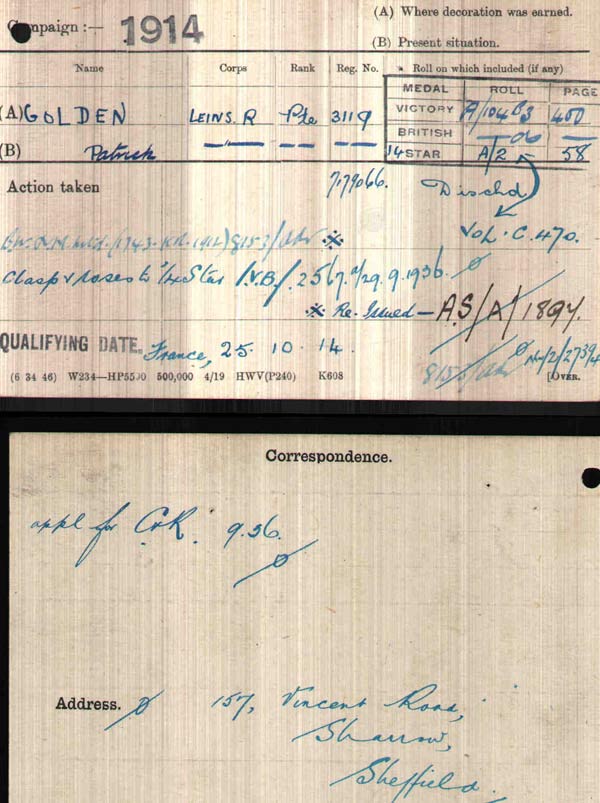 Campaign :— 1914
(A) Where decoration was earned.
(B) Present situation.
Name Corps Rank Reg. No. Roll on which included (if any)
MEDAL ROLL PAGE
(A) GOLDEN LEINS. R Pte 3119 VICTORY A/104 B3 400
BRITISH — do —
(B) Patrick — " — — — 14 STAR A/2 58
Action taken 7179066. Dischd
Vol. C. 470.
Clasp & roses to '14 Star I.V.B/. 2567 d/29.9.1936.
※ Re-Issued — A.S/A/1894.
QUALIFYING DATE. France, 25. 10. 14.
(6 34 46) W234—HP5590 500,000 4/19 HWV(P240) K608 [OVER.
Correspondence.
appl for C & R. 9.36.
Address. 157, Vincent Road,
Sharrow,
Sheffield.